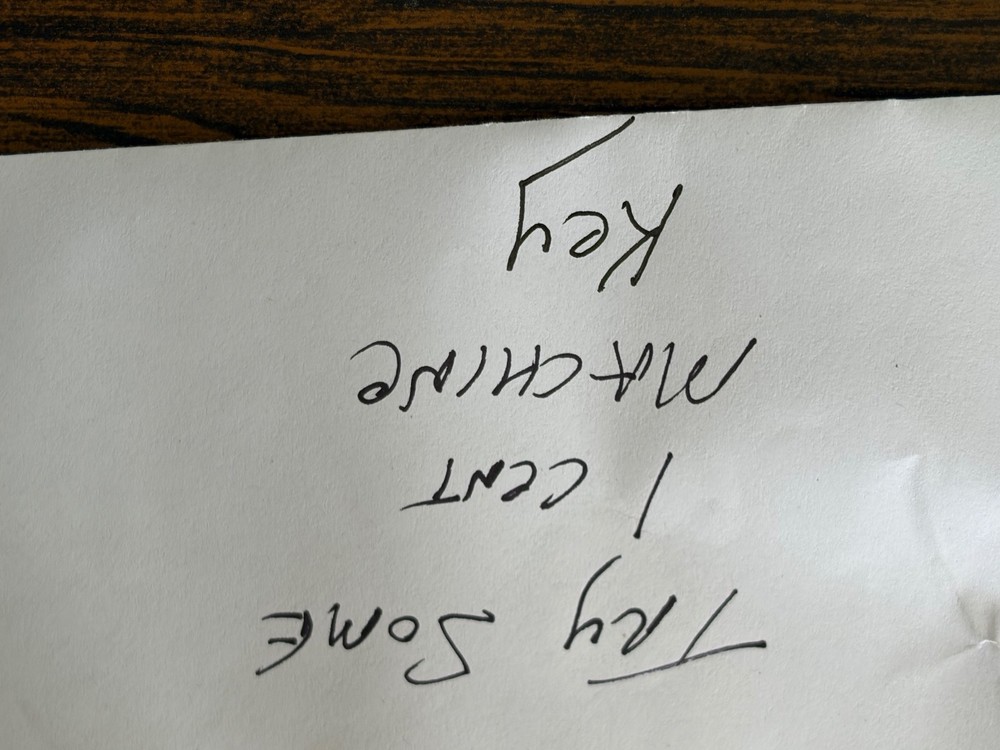 TRY SOME
1 CENT
MACHINE
Key